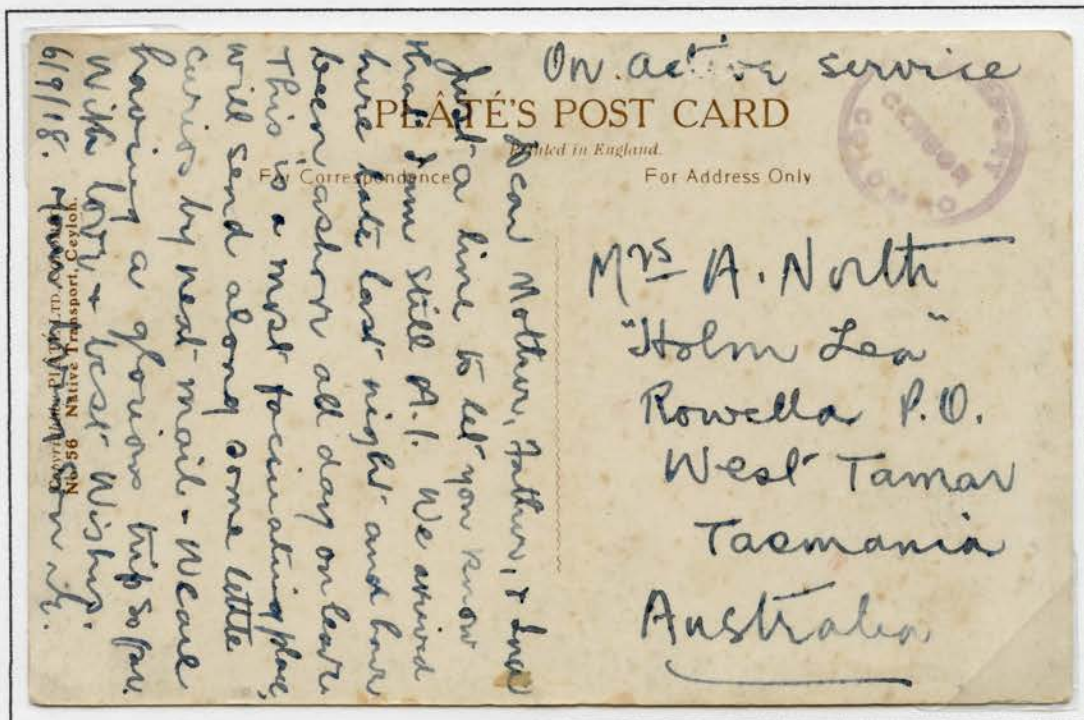 On active service
PLÂTÉ'S POST CARD
Printed in England.
For Correspondence
For Address Only
CENSOR
COLOMBO
Mrs A. North
"Holm Lea"
Rowella P.O.
West Tamar
Tasmania
Australia
Dear Mother, Father, &
Just a line to let you know
that I am still A.1. We arrived
here late last night and have
been ashore all day on leave
This is a most fascinating place,
will send along some little
curios by next mail. We are
having a glorious trip so far.
With love & best wishes.
6/9/18. Your loving son
PLÂTÉ LTD.
No. 56 Native Transport, Ceylon.